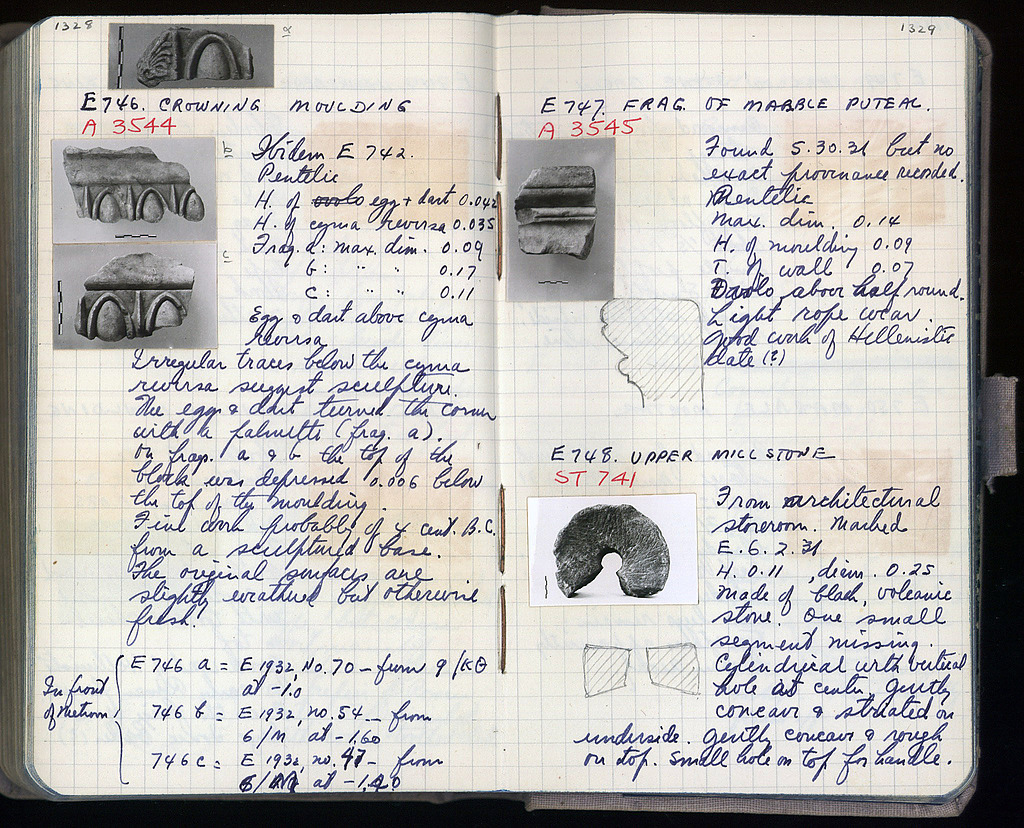 1328
a
E 746. CROWNING MOULDING
A 3544
b
c
Ibidem E 742.
Pentelic
H. of ovolo egg + dart 0.042
H. of cyma reversa 0.035
Frag. a: max. dim. 0.09
b: " " 0.17
c: " " 0.11
Egg & dart above cyma
reversa
Irregular traces below the cyma
reversa suggest sculpture.
The egg & dart turned the corner
with a palmette (frag. a).
On frags. a & b the top of the
block was depressed 0.006 below
the top of the moulding.
Fine work probably of 4 cent. B.C.
from a sculptured base.
The original surfaces are
slightly weathered but otherwise
fresh.
In front
of Metroon
E 746 a = E 1932, No. 70 - from 9/KΘ
at -1.0
746 b = E 1932, no. 54 - from
6/M at -1.60
746 c = E 1932, no. 47 - from
6/ at
1329
E 747. FRAG. OF MARBLE PUTEAL.
A 3545
Found 5.30.31 but no
exact provenance recorded.
Pentelic
Max. dim. 0.14
H. of moulding 0.09
T. of wall 0.07
Ovolo above half round.
Light rope wear.
Good work of Hellenistic
date (?)
E 748. UPPER MILLSTONE
ST 741
From architectural
storeroom. Marked
E.6.2.31
H. 0.11, diam. 0.25
Made of black, volcanic
stone. One small
segment missing.
Cylindrical with vertical
hole at center, gently
concave & striated on
underside. Gently concave & rough
on top. Small hole on top for handle.